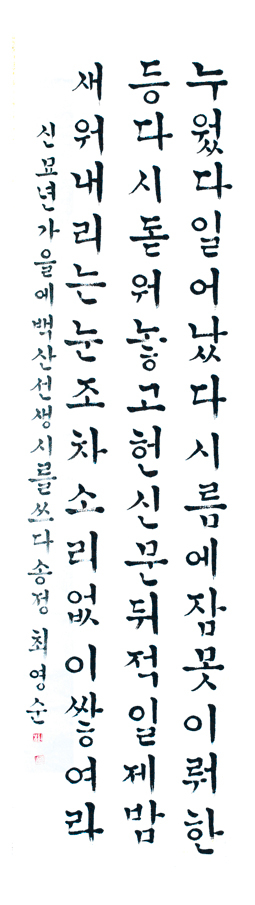 누웠다일어났다시름에잠못이뤄한
등다시돋워놓고헌신문뒤적일제밤
새워내리는눈조차소리없이쌓여라
신묘년가을에백산선생시를쓰다송정최영순